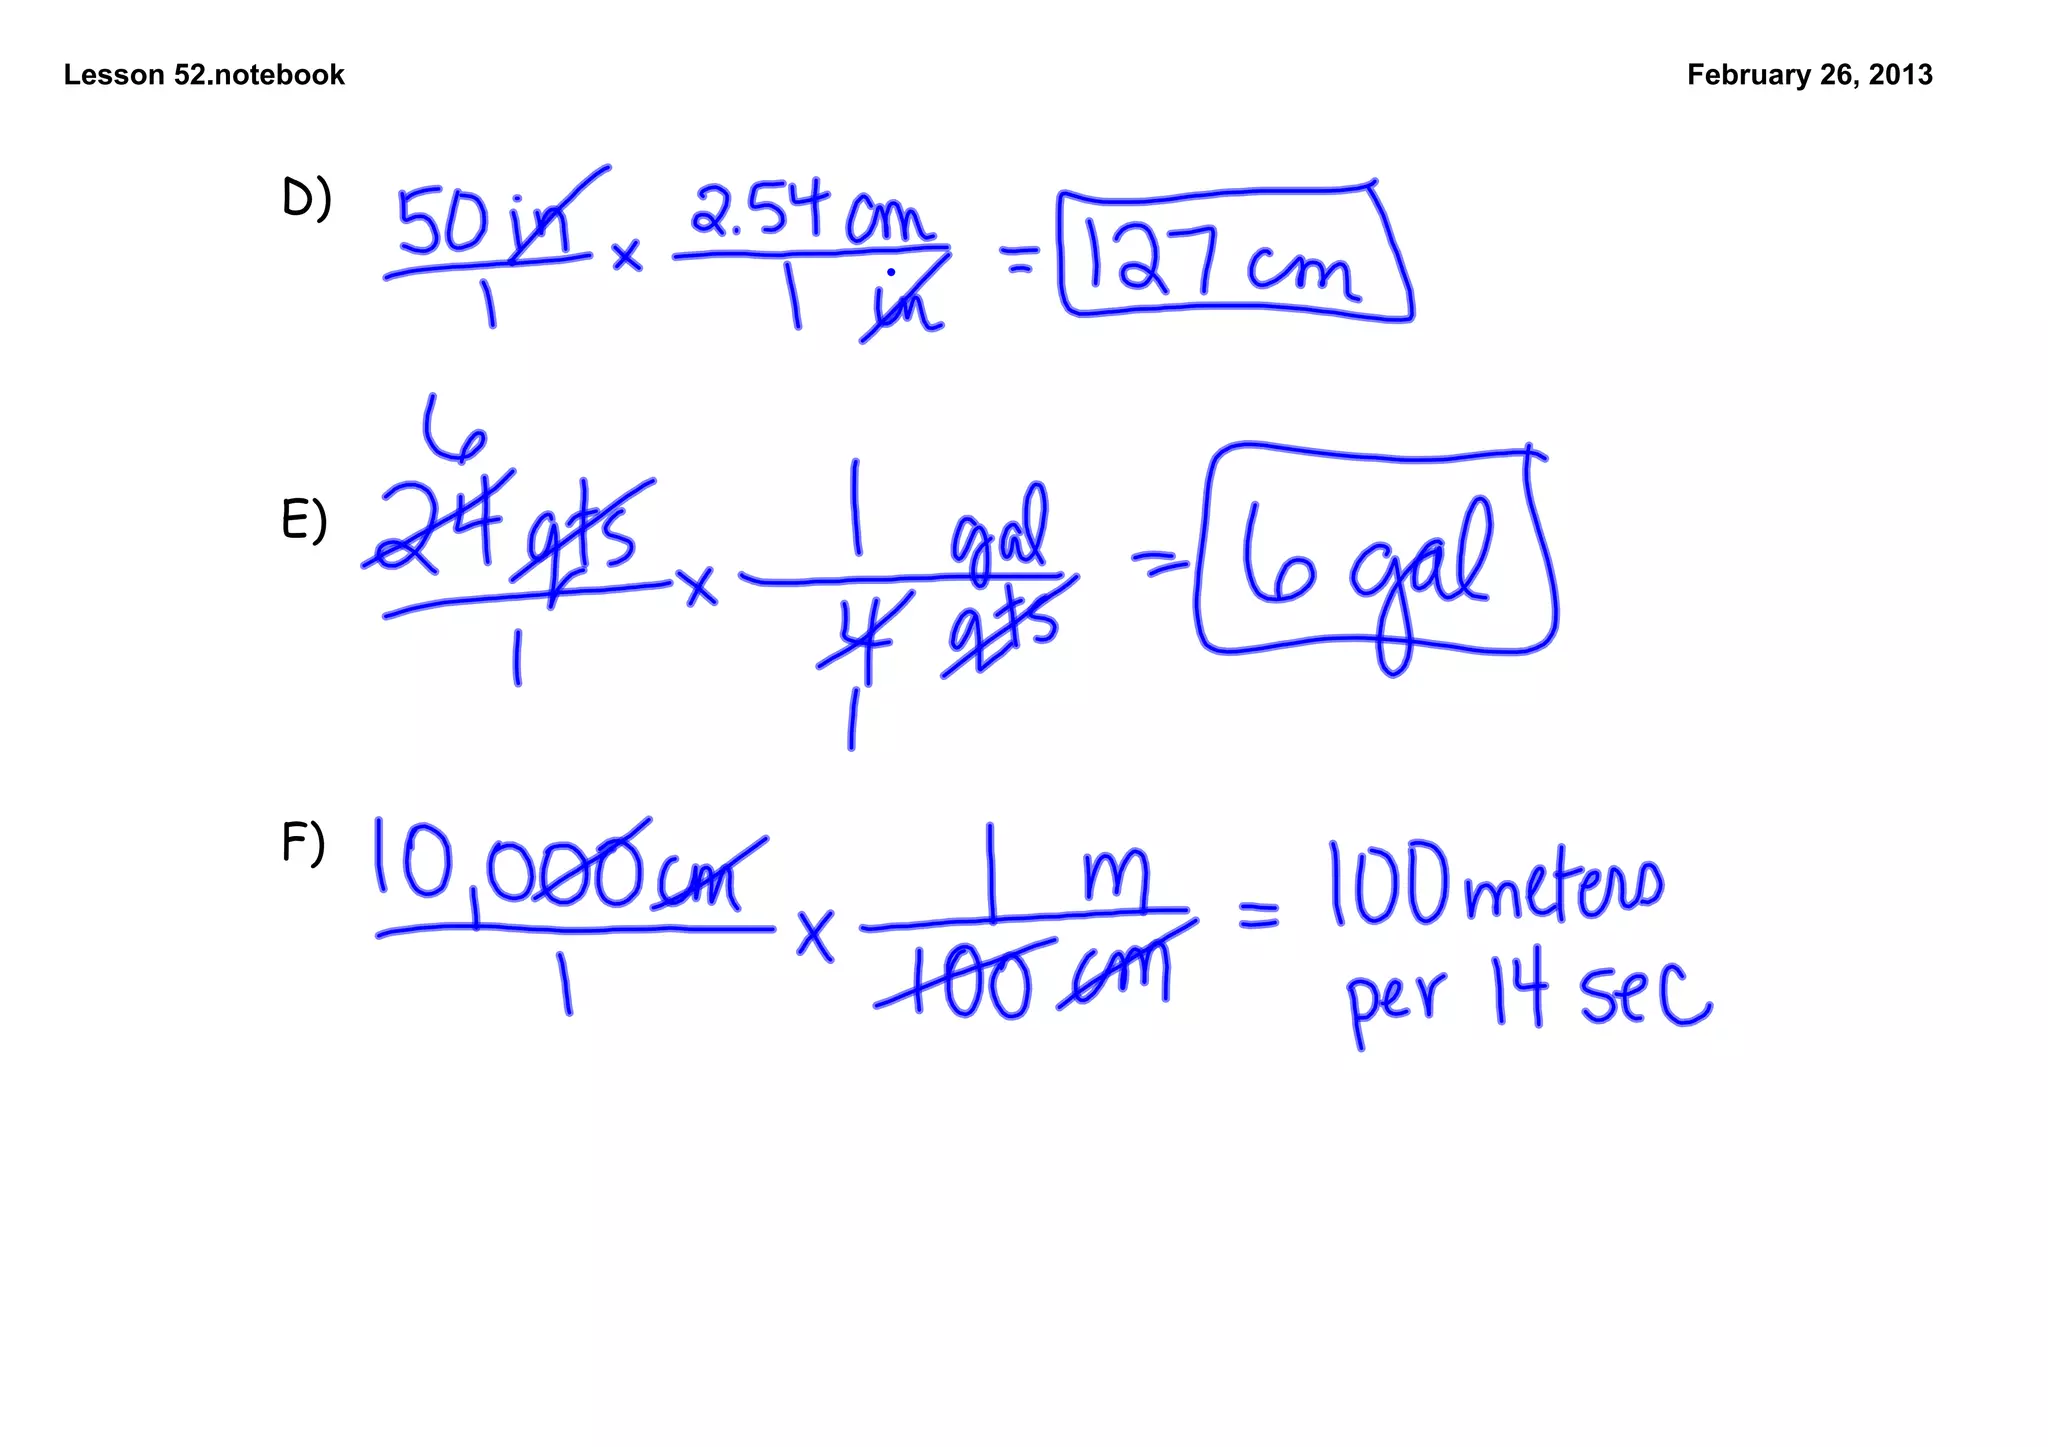 Lesson 52.notebook
February 26, 2013
D) 50 in / 1 × 2.54 cm / 1 in = 127 cm
6
E) 24 qts / 1 × 1 gal / 4 qts = 6 gal
1
F) 10,000 cm / 1 × 1 m / 100 cm = 100 meters
per 14 sec